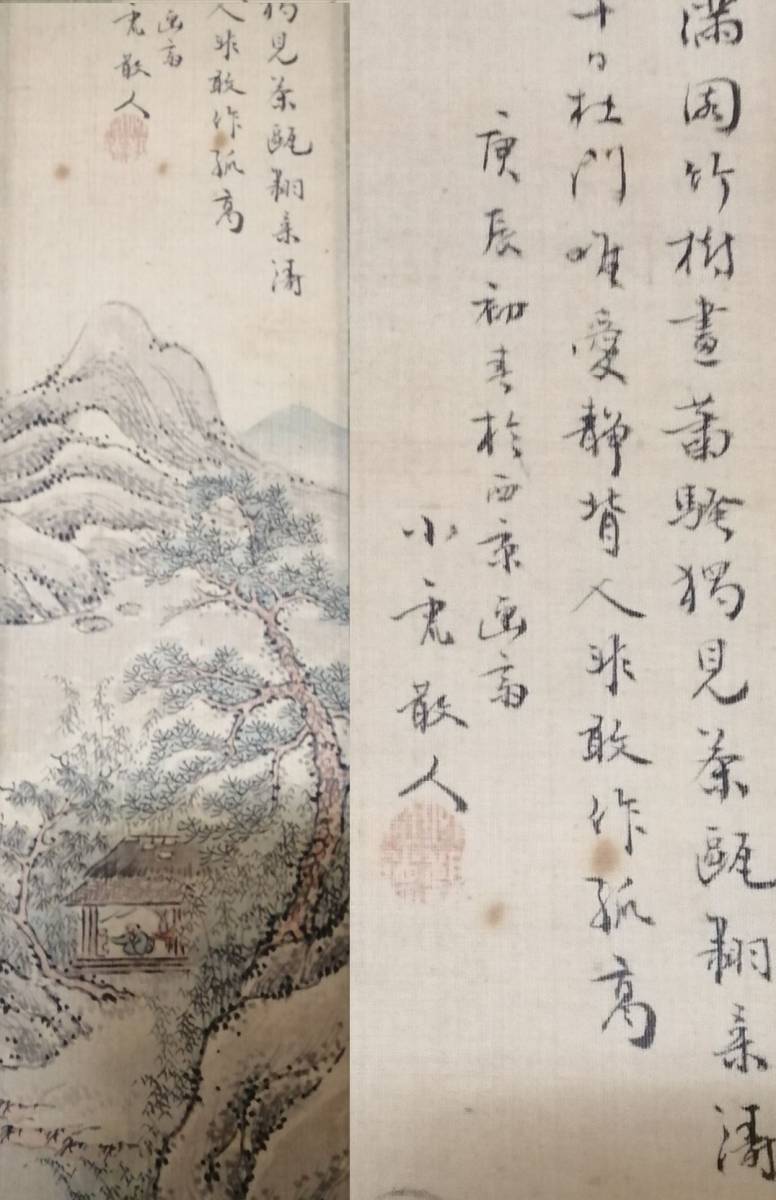 獨見茶甌翻濤
人非敢作孤高
画斎
散人
滿園竹樹晝蕭騷獨見茶甌翻濤
十日杜門唯愛静背人非敢作孤高
庚辰初春於西京画斎
小散人